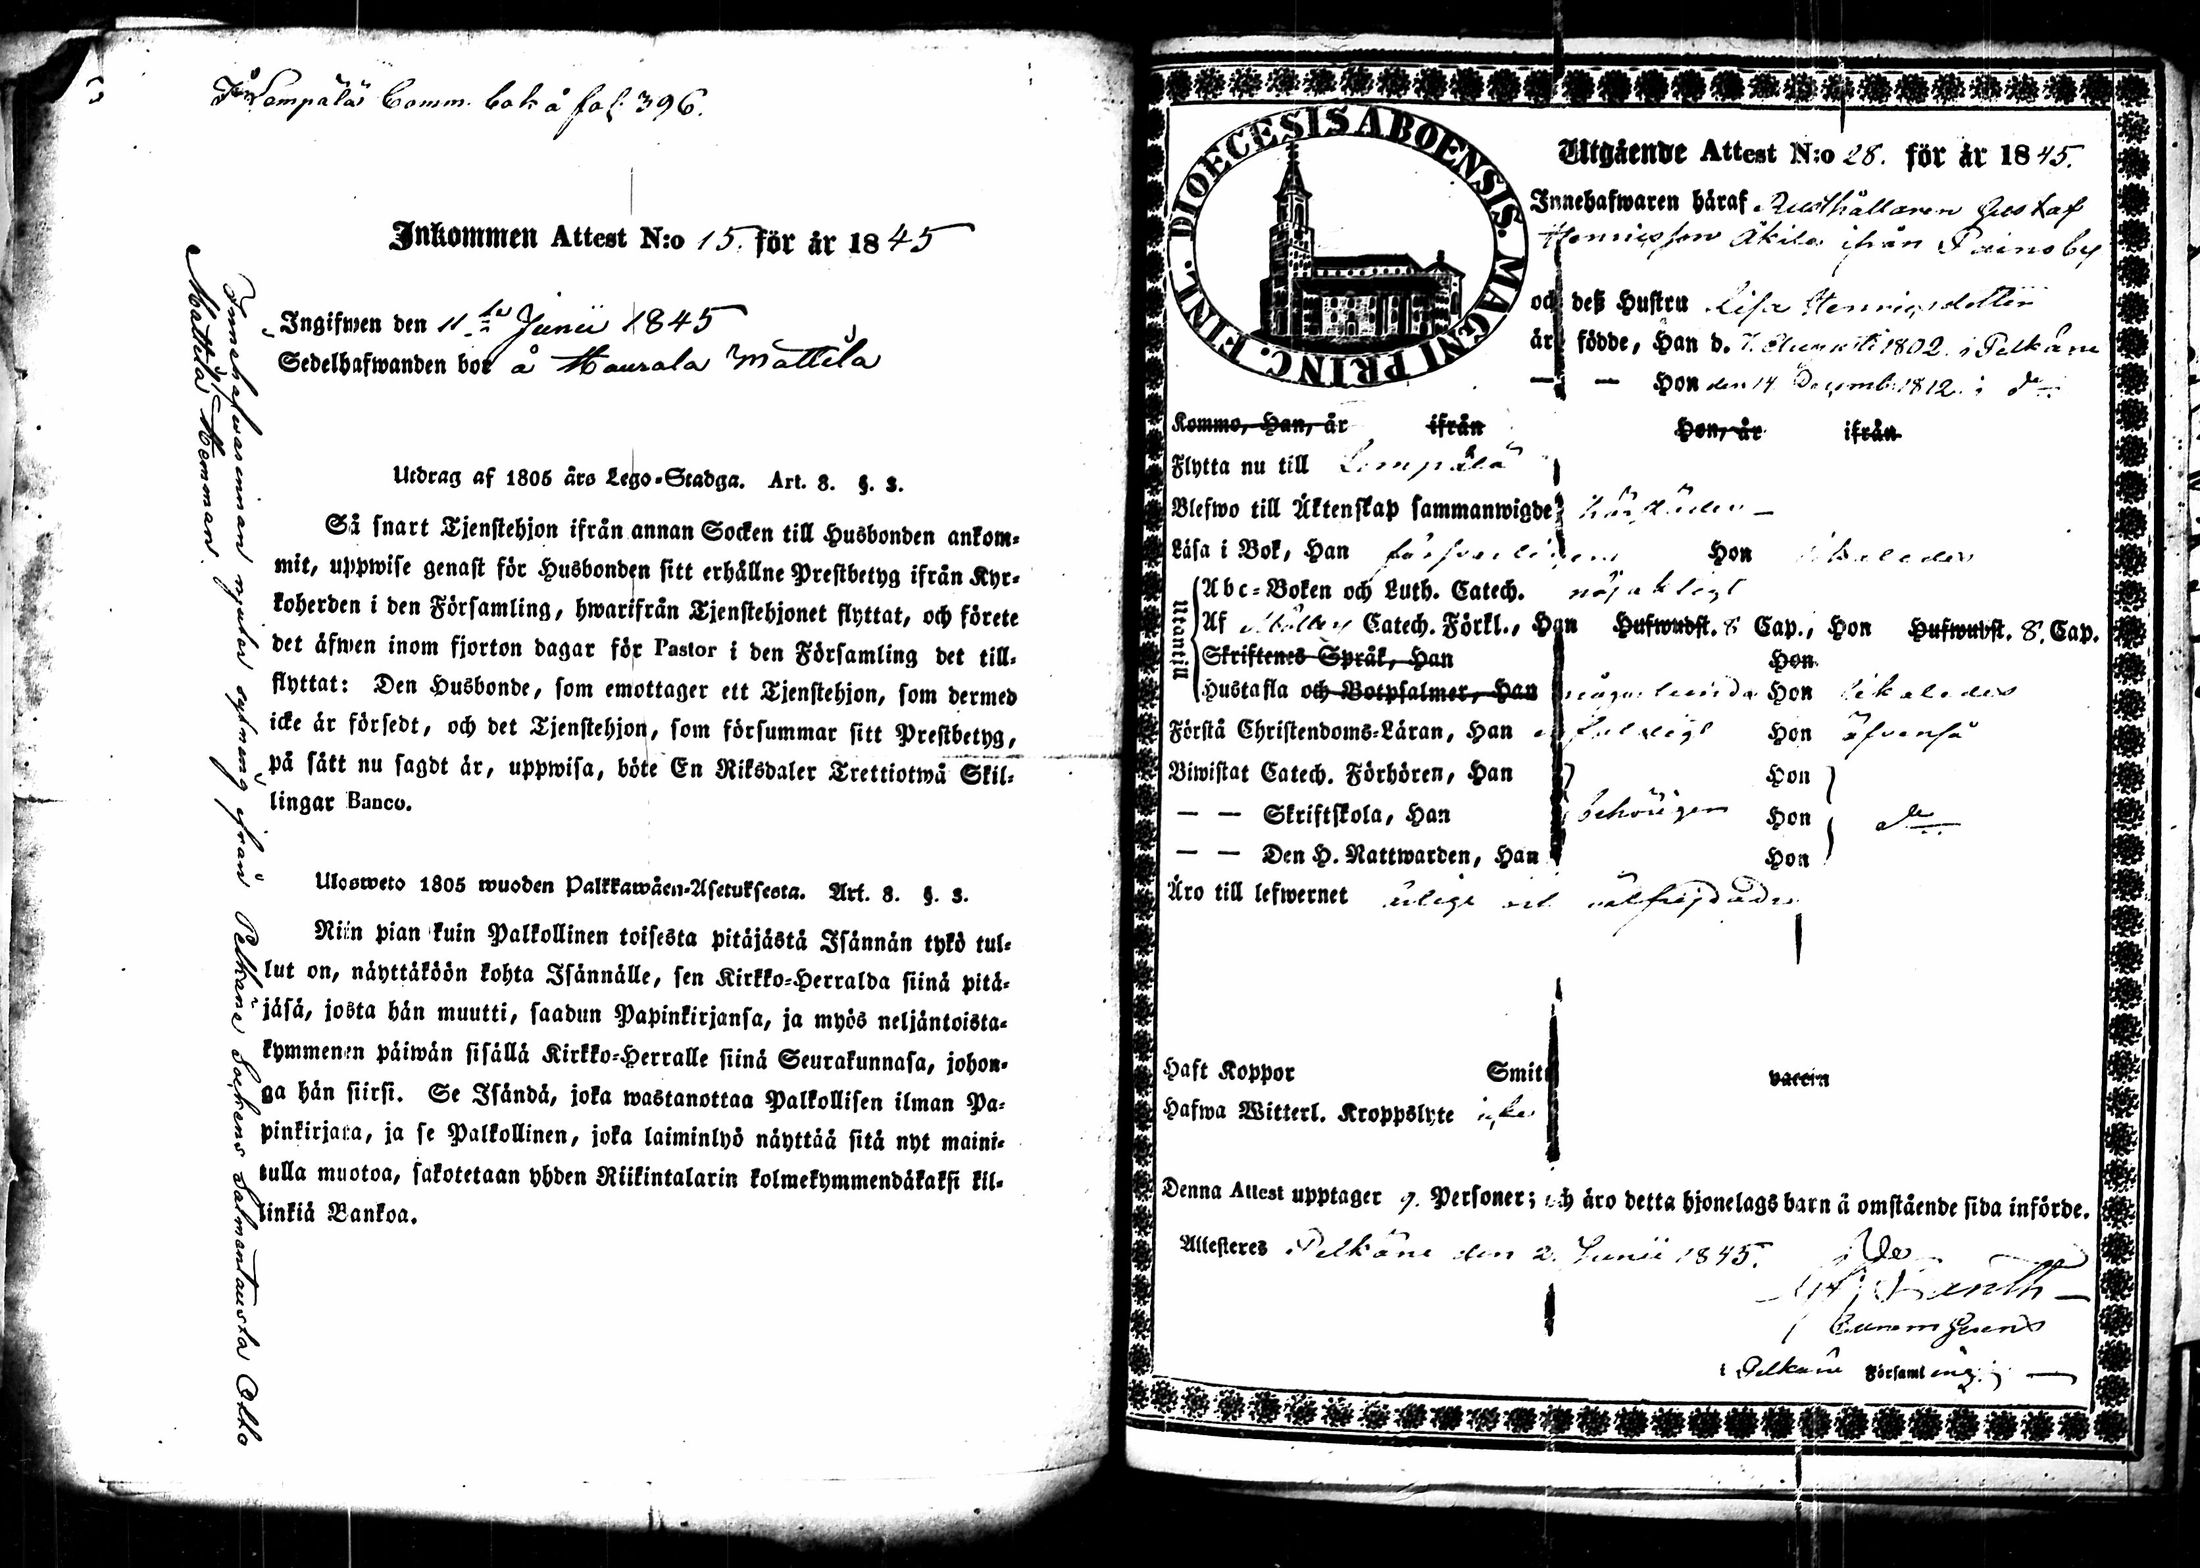 I Lempälä Comm. bok å fol: 396.
Inkommen Attest N:o 15. för år 1845
Ingifwen den 11te Junii 1845
Sedelhafwanden bor å Maurala Mattila
Utdrag af 1805 års Lego-Stadga. Art. 8. §. 3.
Så snart Tjenstehjon ifrån annan Socken till Husbonden ankom-
mit, uppwise genast för Husbonden sitt erhållne Prestbetyg ifrån Kyr-
koherden i den Församling, hwarifrån Tjenstehjonet flyttat, och förete
det äfwen inom fjorton dagar för Pastor i den Församling det till-
flyttat: Den Husbonde, som emottager ett Tjenstehjon, som dermed
icke är försedt, och det Tjenstehjon, som försummar sitt Prestbetyg,
på sätt nu sagdt är, uppwisa, böte En Riksdaler Trettiotwå Skil-
lingar Banco.
Ulosweto 1805 wuoden Palkkawäen-Asetuksesta. Art. 8. §. 3.
Niin pian kuin Palkollinen toisesta pitäjästä Isännän tykö tul-
lut on, näyttäköön kohta Isännälle, sen Kirkko-Herralda siinä pitä-
jäsä, josta hän muutti, saadun Papinkirjansa, ja myös neljäntoista-
kymmenen päiwän sisällä Kirkko-Herralle siinä Seurakunnasa, johon-
ga hän siirsi. Se Isändä, joka wastanottaa Palkollisen ilman Pa-
pinkirjata, ja se Palkollinen, joka laiminlyö näyttää sitä nyt maini-
tulla muotoa, sakotetaan yhden Riikintalarin kolmekymmendäkaksi kil-
linkiä Bankoa.
Innehafwarinnan njuter sytning ifrån Pelkäne Sockens Salmentausta Ollo
Mattila Hemman.
DIOECESIS ABOENSIS. MAGNI PRINC. FINL.
Utgående Attest N:o 28. för år 1845.
Innehafwaren häraf Rusthållaren Gustaf
Henricsson Äkilä ifrån Painoby
och deß Hustru Lisa Henricsdotter
är födde, Han d. 7. Augusti 1802. i Pelkäne
— — Hon den 14 Decemb. 1812. i do
Kommo, Han, år ifrån Hon, år ifrån
Flytta nu till Lempälä
Blefwo till Äktenskap sammanwigde härstädes —
Läsa i Bok, Han försvarligen Hon likaledes
Utantill
Abc-Boken och Luth. Catech. nöjaktigt
Af Catech. Förkl., Han Hufwudst. 8 Cap., Hon Hufwudst. 8. Cap.
Skriftenes Språk, Han Hon
Hustafla och Botpsalmer, Han någorlunda Hon likaledes
Förstå Christendoms-Läran, Han enfaldigt Hon äfvenså
Biwistat Catech. Förhören, Han Hon
— — Skriftskola, Han behörigen Hon do
— — Den H. Nattwarden, Han Hon
Äro till lefwernet ärlige och välfrejdade
Haft Koppor Smitt vaccin
Hafwa Witterl. Kroppslyte icke
Denna Attest upptager 9. Personer; och äro detta hjonelags barn å omstående sida införde.
Attesteres Pelkäne den 2. Junii 1845.
i Pelkäne Församling.